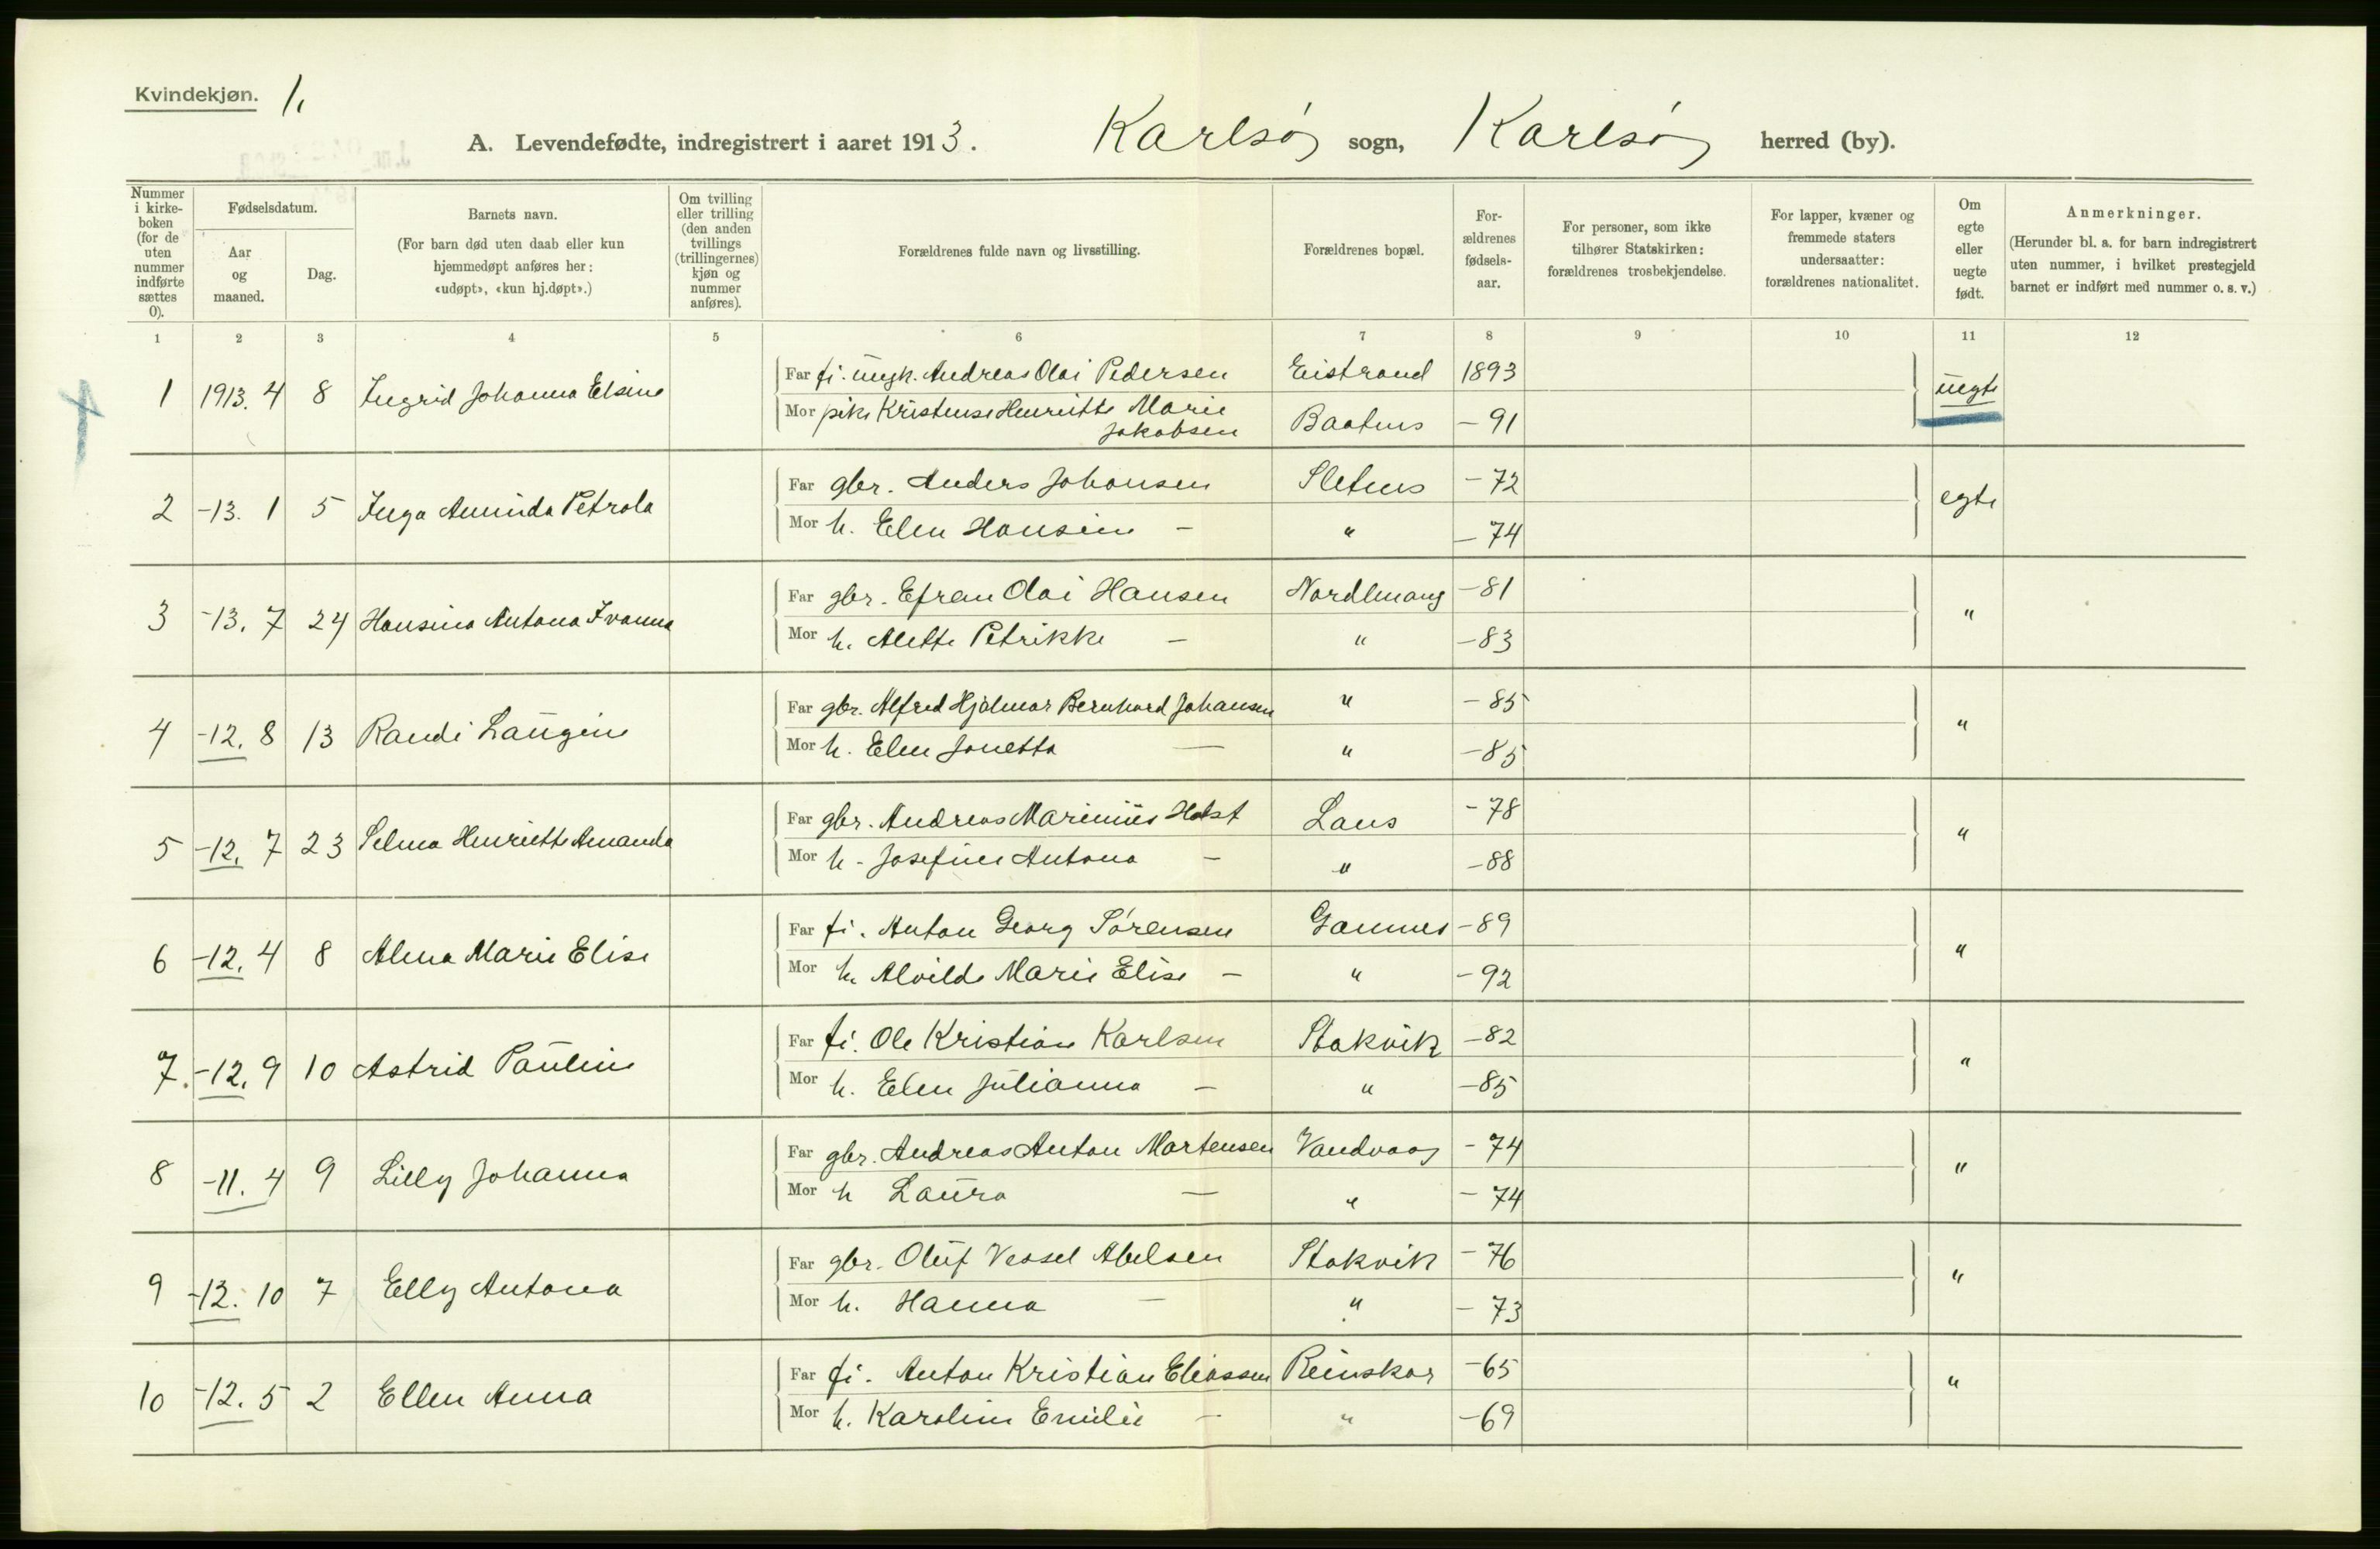 Kvindekjøn. 1.
A. Levendefødte, indregistrert i aaret 1913. Karlsøy sogn, Karlsøy herred (by).
Nummer i kirke-boken (for de uten nummer indførte sættes 0).
Fødselsdatum.
Aar og maaned.
Dag.
Barnets navn.
(For barn død uten daab eller kun hjemmedøpt anføres her: «udøpt», «kun hj.døpt».)
Om tvilling eller trilling (den anden tvillings (trillingernes) kjøn og nummer anføres).
Forældrenes fulde navn og livsstilling.
Forældrenes bopæl.
For-ældrenes fødsels-aar.
For personer, som ikke tilhører Statskirken: forældrenes trosbekjendelse.
For lapper, kvæner og fremmede staters undersaatter: forældrenes nationalitet.
Om egte eller uegte født.
Anmerkninger.
(Herunder bl. a. for barn indregistrert uten nummer, i hvilket prestegjeld barnet er indført med nummer o. s. v.)
1 2 3 4 5 6 7 8 9 10 11 12
Far fi. ungk. Andreas Olai Pedersen Eistrand 1893
1 1913. 4 8 Ingrid Johanna Elsine uegte
Mor pike Kristense Henriette Marie Jakobsen Baatnes -91
Far gbr. Anders Johansen Sletnes -72
2 -13. 1 5 Inga Aminda Petrola egte
Mor h. Elen Hansine - " -74
Far gbr. Efran Olai Hansen Nordlmang -81
3 -13. 7 24 Hansina Antona Ivanna "
Mor h. Alette Petrikke - " -83
Far gbr. Alfred Hjalmar Bernhard Johansen " -85
4 -12. 8 13 Randi Laugine "
Mor h. Elen Jonetta - " -85
Far gbr. Andreas Marinius Holst Lanes -78
5 -12. 7 23 Selma Henriette Amanda "
Mor h - Josefine Antona - " -88
Far fi. Anton Georg Sørensen Gamnes -89
6 -12. 4 8 Alma Marie Elise "
Mor h. Alvilde Marie Elise - " -92
Far fi. Ole Kristian Karlsen Stakvik -82
7. -12. 9 10 Astrid Pauline "
Mor h. Elen Julianna - " -85
Far gbr. Andreas Anton Martensen Vandvaag -74
8 -11. 4 9 Lilly Johanna "
Mor h Laura - " -74
Far gbr. Oluf Vessel Abelsen Stakvik -76
9 -12. 10 7 Elly Antona "
Mor h. Hanna - " -73
Far fi. Anton Kristian Eliassen Reinskar -65
10 -12. 5 2 Ellen Anna "
Mor h. Karoline Emilie - " -69